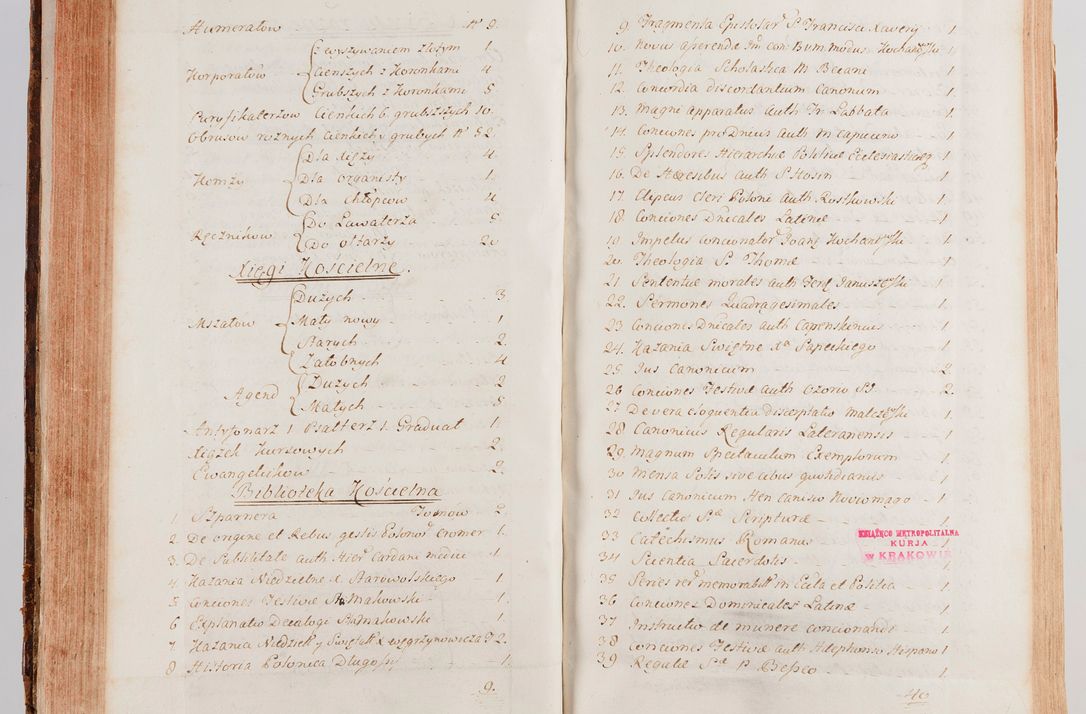 Humerałow N° 9.
Korporałow
z wyszywaniem złotym 1.
cienszych z Koronkami 4
Grubszych z Koronkami 5
Puryfikaterzow cienkich 6 grubszych 10.
Obrusow roznych cienkich y grubych N° 52.
Komży
Dla Xięży 4.
Dla organisty 1.
Dla Chłopcow 4
Ręcznikow
Do Lawaterza 5
Do ołtarzy 20
Xięgi Kościelne.
Mszałow
Dużych 3
Mały nowy 1
Starych 2.
Załobnych 4
Agend
Dużych 2
Małych 5
Antyfonarz 1 Psałterz 1. Graduał 1
Xiążek Kursowych 2.
Ewangelikow 2.
Biblioteka Kościelna
1 Szparnera Tomow 2.
2. De origine et Rebus gestis Polonor Cromer 1.
3. De Subtilitate auth Hier Cardani medici 1.
4 Kazania Niedzielne X Starowolskiego 1.
5 Conciones Festivæ Makowski 1.
6 Explanatio Decalogi Makowski 1.
7 Kazania Niedziel y Swięt X Węgrzynowicza 2.
8 Historia Polonica Długosz 1.
9.
9 Fragmenta Epistolar S Francisci Xavery 1.
10. Novus asperendi modus Kochanowski 1
11. Theologia Scholastica M Becani 1.
12. Concordia discordantium Canonum 1.
13. Magni apparatus auth Fr Labbata 1.
14. Conciones pro Dnicis auth M Capucini 1
15. Splendores Hierarchiæ Politiæ Ecclesiasticæ 1.
16. De Hæresibus auth S Hosin 1.
17. Clipeus Cleri Poloni auth Rostkowski 1
18. Conciones Dnicales Latinæ 1.
19 Impetus Concionator Joan Kochanowski 1.
20. Theologia S Thomæ 1
21 Sententiæ morales auth Januszewski 1.
22. Sermones Quadragesimales 1.
23 Conciones Dnicales auth Capenskenius 1.
24. Kazania Swiętne Xa Papeckiego 1.
25. Jus Canonicum 2.
26 Conciones Festivæ auth Ozorio SJ 2.
27 De vera eloquentia disceptatio Malczewski 1.
28 Canonicus Regularis Lateranensis 1.
29. Magnum Spectaculum Exemplorum 1.
30 Mensa Solis sive cibus quotidianus 1.
31 Jus Canonicum Hen Canisio Noviomago 1.
32 Collectio Stæ Scripturæ 1.
33 Catechismus Romanus 1
34 Scientia Sacerdotis 1
35 Series rer memorabil in Eccla et Politia 1.
36 Conciones Dominicales Latinæ 1.
37 Instructio de munere concionandi 1.
38 Conciones Festivæ auth Ildephonso Hispano 1.
39 Regulæ Stæ P. Besseo 1.
40
KSIĄŻĘCO METROPOLITALNA
KURJA
W KRAKOWIE